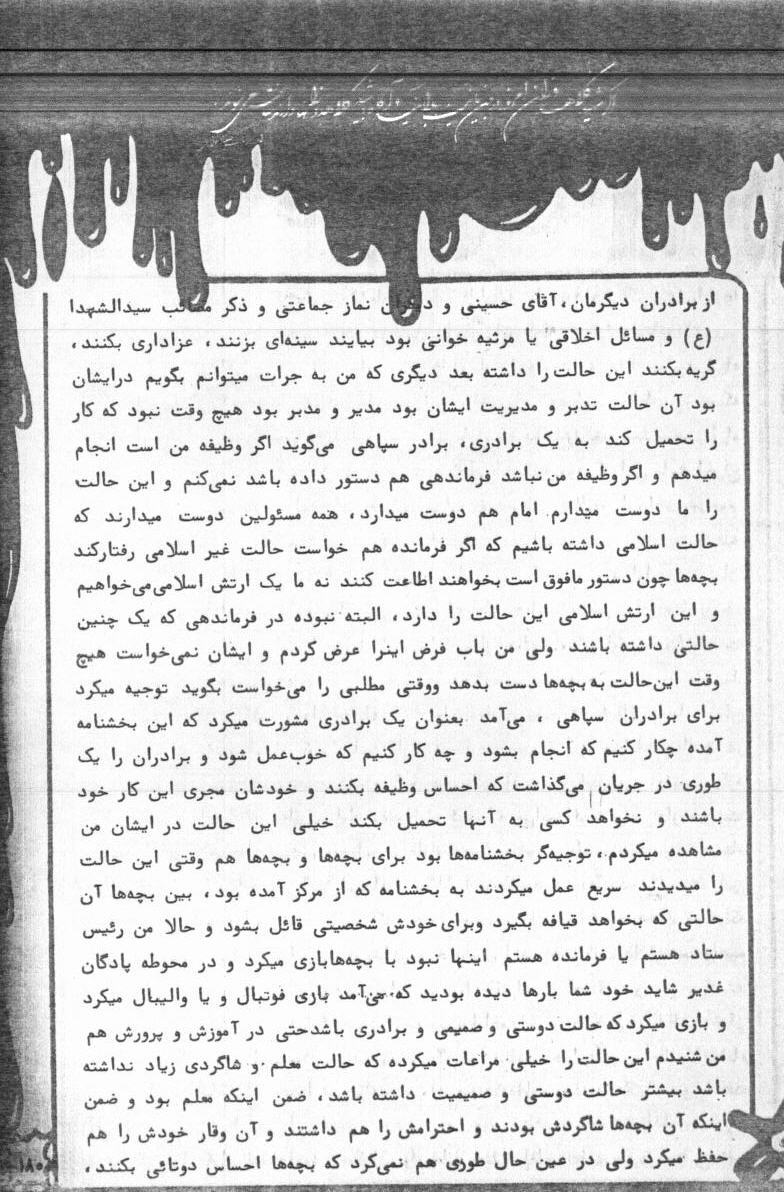 از برادران دیگرمان، آقای حسینی و دیگران نماز جماعتی و ذکر مصائب سیدالشهدا
(ع) و مسائل اخلاقی یا مرثیه خوانی بود بیایند سینه‌ای بزنند، عزاداری بکنند،
گریه بکنند این حالت را داشته بعد دیگری که من به جرات میتوانم بگویم درایشان
بود آن حالت تدبر و مدیریت ایشان بود مدیر و مدبر بود هیچ وقت نبود که کار
را تحمیل کند به یک برادری، برادر سپاهی می‌گوید اگر وظیفه من است انجام
میدهم و اگر وظیفه من نباشد فرماندهی هم دستور داده باشد نمی‌کنم و این حالت
را ما دوست میدارم امام هم دوست میدارد، همه مسئولین دوست میدارند که
حالت اسلامی داشته باشیم که اگر فرمانده هم خواست حالت غیر اسلامی رفتارکند
بچه‌ها چون دستور مافوق است بخواهند اطاعت کنند نه ما یک ارتش اسلامی‌می‌خواهیم
و این ارتش اسلامی این حالت را دارد، البته نبوده در فرماندهی که یک چنین
حالتی داشته باشند ولی من باب فرض اینرا عرض کردم و ایشان نمی‌خواست هیچ
وقت این‌حالت به بچه‌ها دست بدهد ووقتی مطلبی را می‌خواست بگوید توجیه میکرد
برای برادران سپاهی ، می‌آمد بعنوان یک برادری مشورت میکرد که این بخشنامه
آمده چکار کنیم که انجام بشود و چه کار کنیم که خوب‌عمل شود و برادران را یک
طوری در جریان می‌گذاشت که احساس وظیفه بکنند و خودشان مجری این کار خود
باشند و نخواهد کسی به آنها تحمیل بکند خیلی این حالت در ایشان من
مشاهده میکردم، توجیه‌گر بخشنامه‌ها بود برای بچه‌ها و بچه‌ها هم وقتی این حالت
را میدیدند سریع عمل میکردند به بخشنامه که از مرکز آمده بود، بین بچه‌ها آن
حالتی که بخواهد قیافه بگیرد وبرای خودش شخصیتی قائل بشود و حالا من رئیس
ستاد هستم یا فرمانده هستم اینها نبود با بچه‌هابازی میکرد و در محوطه پادگان
غدیر شاید خود شما بارها دیده بودید که می‌آمد بازی فوتبال و یا والیبال میکرد
و بازی میکرد که حالت دوستی و صمیمی و برادری باشدحتی در آموزش و پرورش هم
من شنیدم این حالت را خیلی مراعات میکرده که حالت معلم و شاگردی زیاد نداشته
باشد بیشتر حالت دوستی و صمیمیت داشته باشد، ضمن اینکه معلم بود و ضمن
اینکه آن بچه‌ها شاگردش بودند و احترامش را هم داشتند و آن وقار خودش را هم
حفظ میکرد ولی در عین حال طوری هم نمی‌کرد که بچه‌ها احساس دوتائی بکنند،
۱۸۰